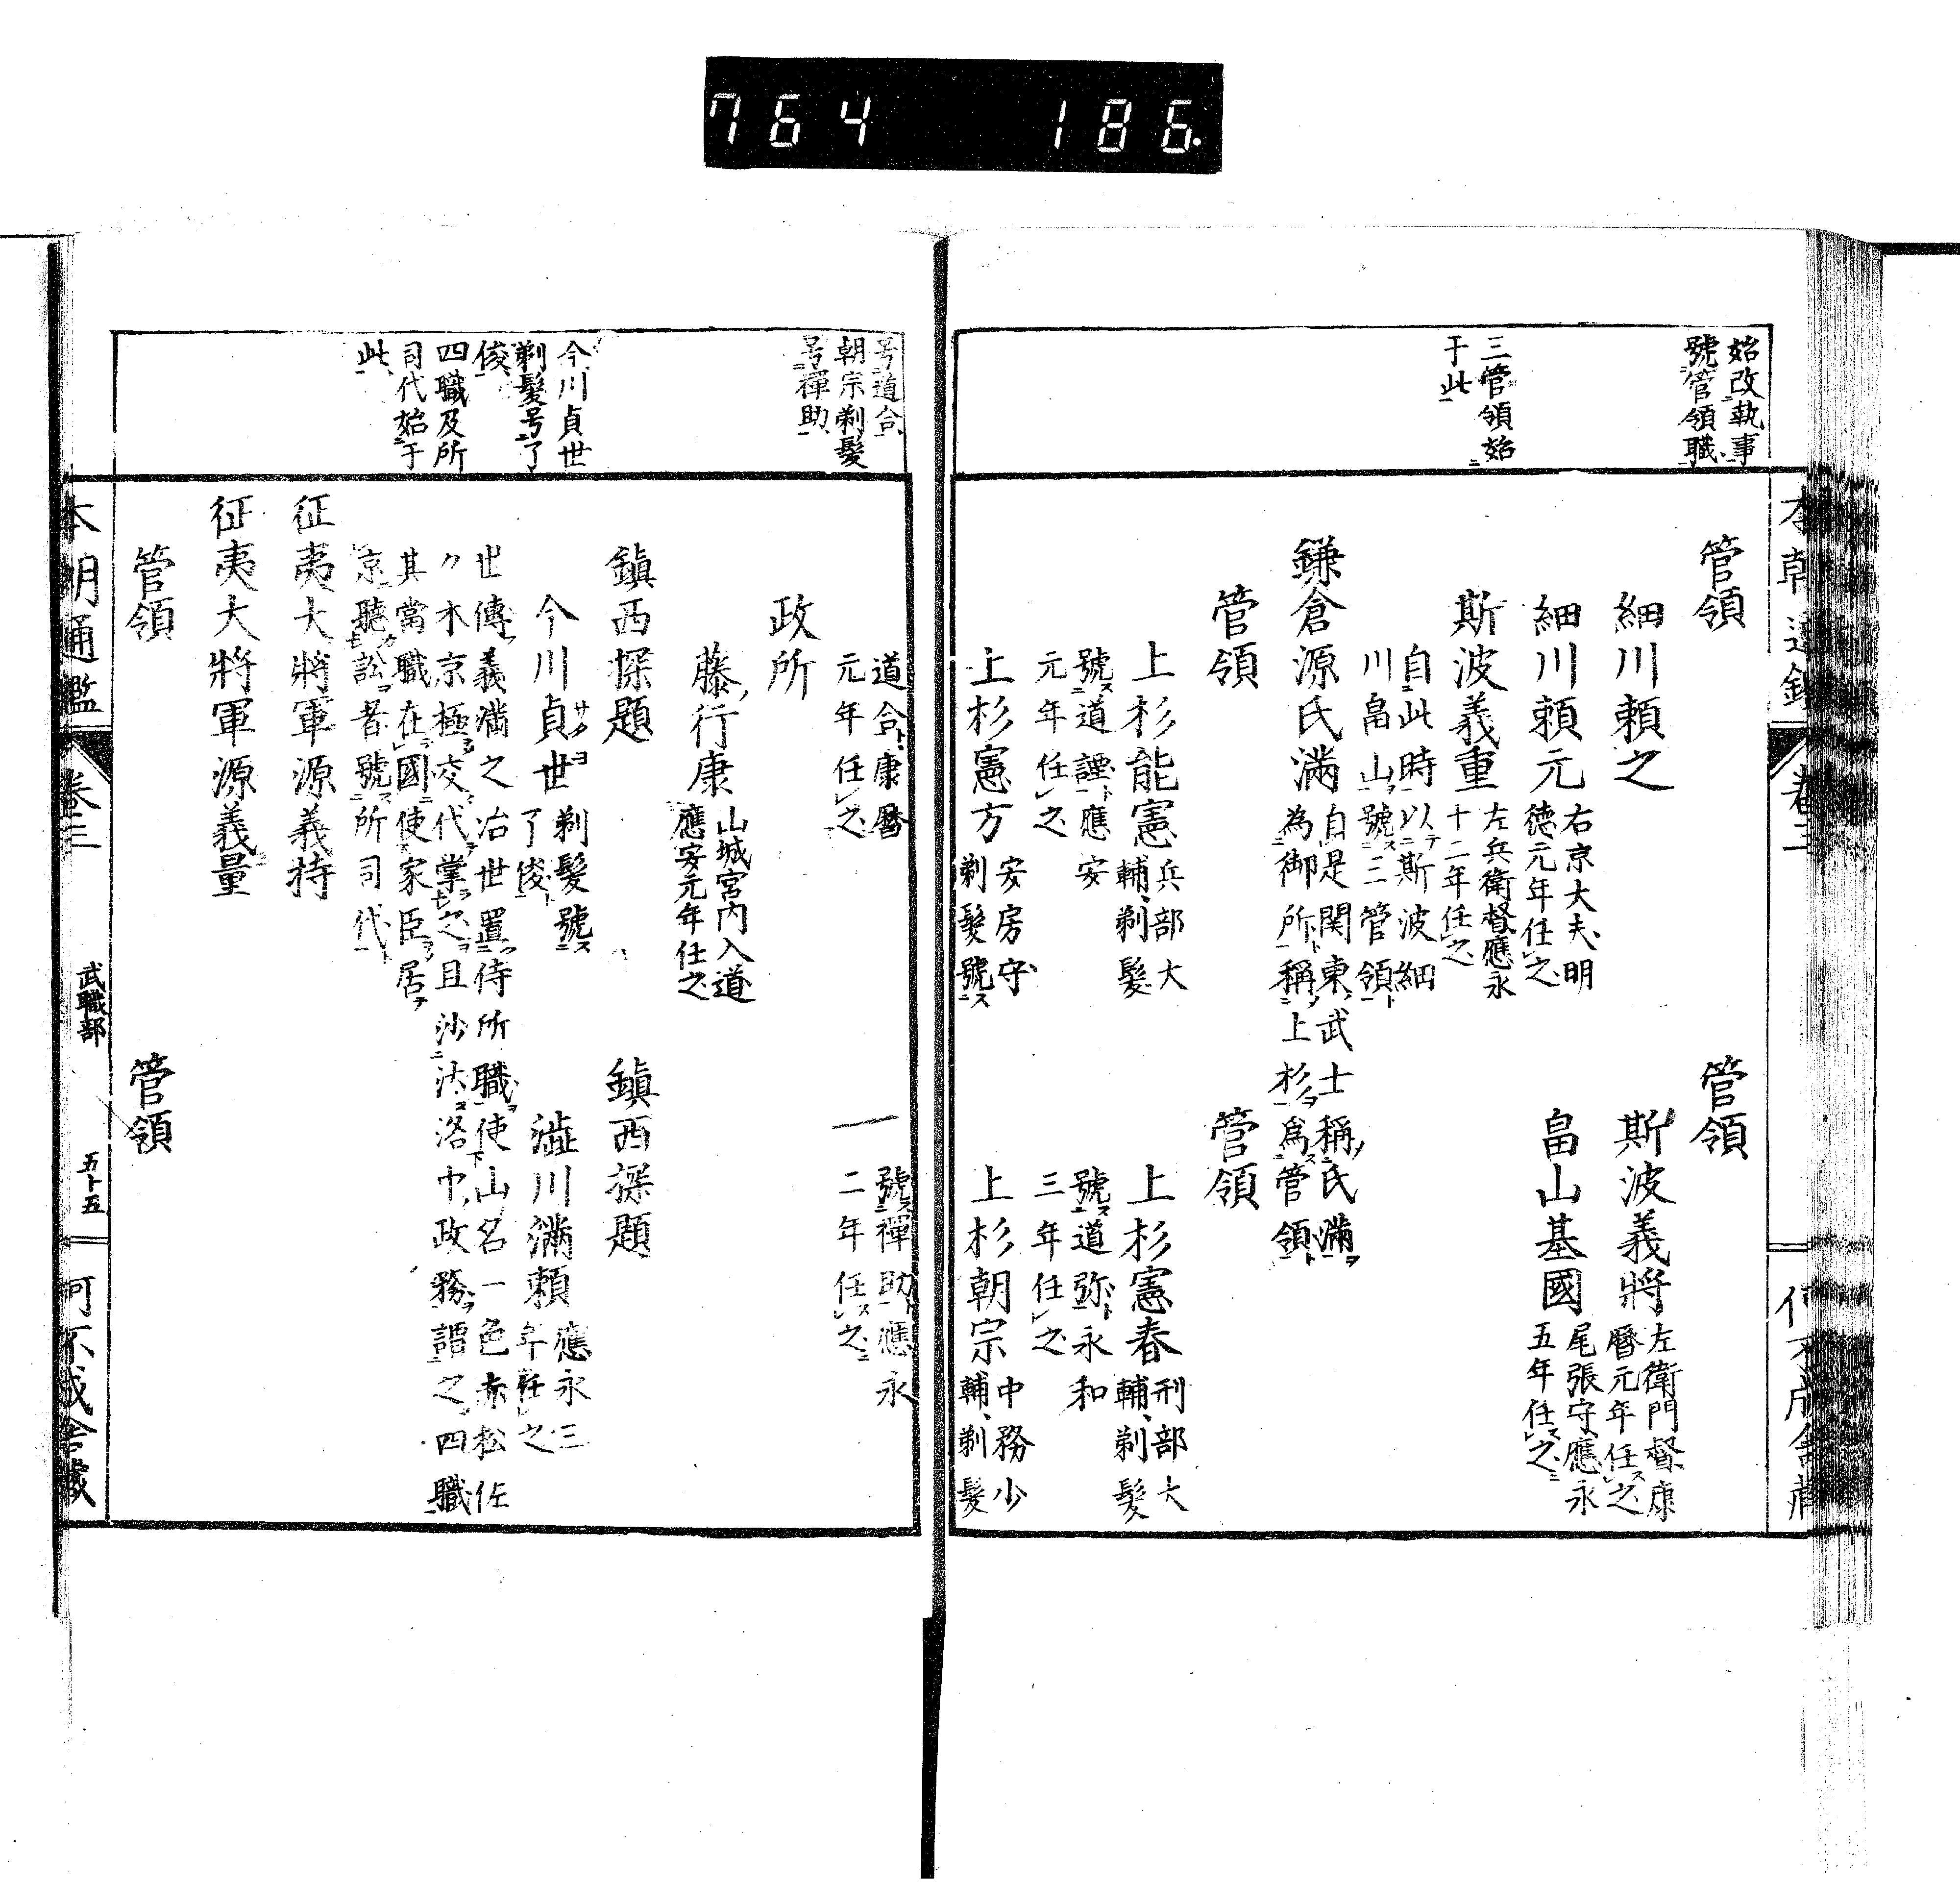 764 186.
始改執事
號管領職
三管領始
于此
管領 管領
細川頼之 斯波義將 左衛門督康
暦元年任之
細川頼元 右京大夫明
德元年任之 畠山基國 尾張守應永
五年任之
斯波義重 左兵衛督應永
十二年任之
自此時以斯波細
川畠山號三管領
鎌倉源氏滿 自是関東武士稱氏滿
為御所稱上杉為管領
管領 管領
上杉能憲 兵部大
輔剃髮
號道諲應安
元年任之
上杉憲春 刑部大
輔剃髮
號道弥永和
三年任之
上杉憲方 安房守
剃髮號
上杉朝宗 中務少
輔剃髮
号道合
朝宗剃髮
号禪助
今川貞世
剃髮号了
俊
四職及所
司代始于
此
道合康暦
元年任之
號禪助應永
二年任之
政所
藤行康 山城宮内入道
應安元年任之
鎮西探題 鎮西探題
今川貞世 剃髮號
了俊 澁川滿頼 應永三
年任之
世傳義滿之治世置侍所職使山名一色赤松佐
々木京極交代掌之且沙汰洛中政務謂之四職
其當職在國使家臣居
京聽訟者號所司代
征夷大將軍源義持
征夷大將軍源義量
管領 管領
本朝通鑑 卷三 武職部 五十五